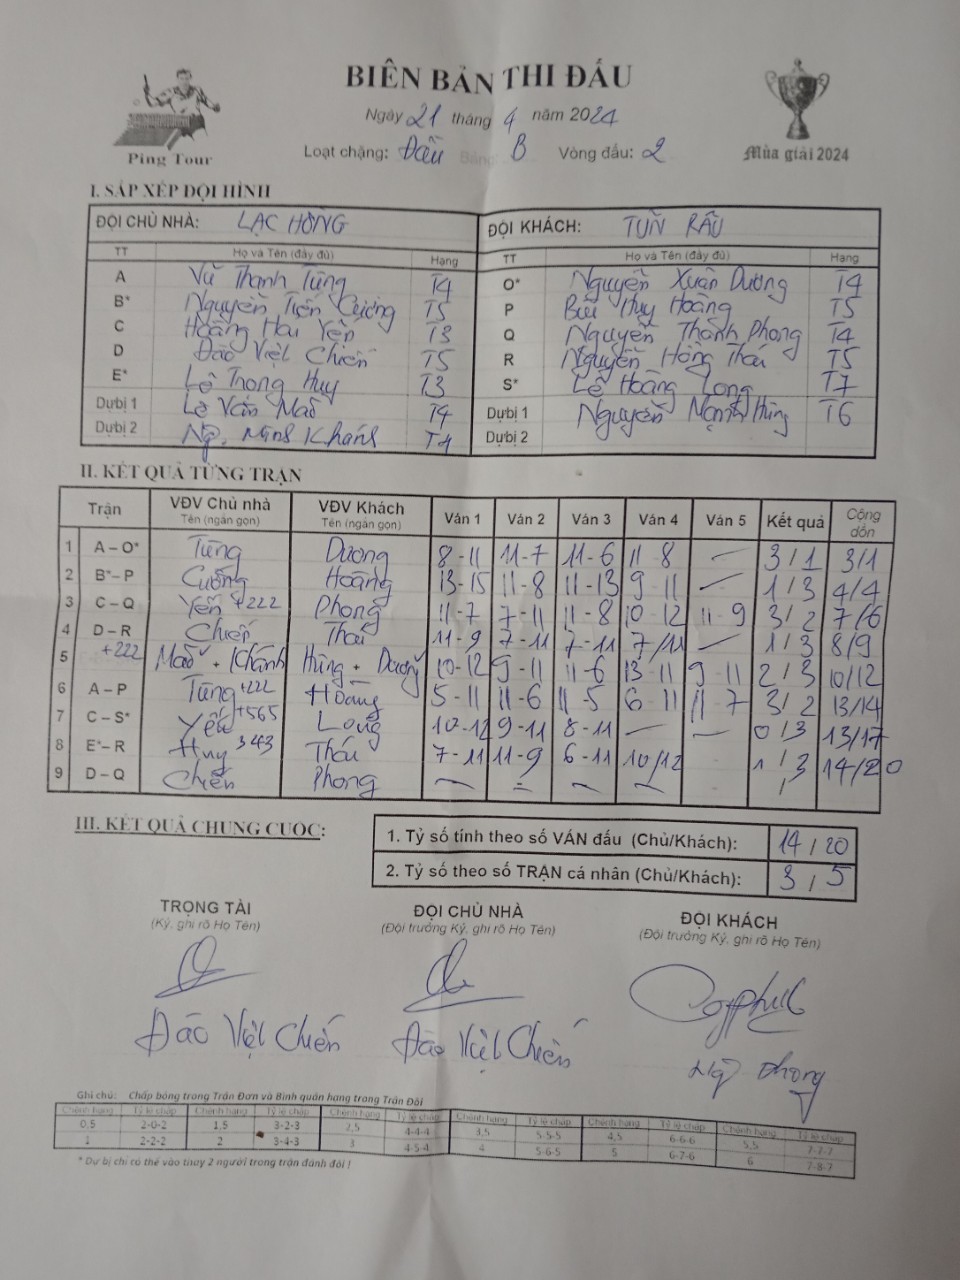 BIÊN BẢN THI ĐẤU
Ngày 21 tháng 4 năm 2024
Loạt chặng: Đầu Bảng: B Vòng đấu: 2
Ping Tour
Mùa giải 2024
I. SẮP XẾP ĐỘI HÌNH
ĐỘI CHỦ NHÀ: LẠC HỒNG ĐỘI KHÁCH: TUẤN RÂU
TT Họ và Tên (đầy đủ) Hạng TT Họ và Tên (đầy đủ) Hạng
A Vũ Thanh Tùng T4 O* Nguyễn Xuân Dương T4
B* Nguyễn Tiến Cương T5 P Bùi Huy Hoàng T5
C Hoàng Hải Yến T3 Q Nguyễn Thành Phong T4
D Đào Việt Chiến T5 R Nguyễn Hồng Thái T5
E* Lê Trọng Huy T3 S* Lê Hoàng Long T7
Dự bị 1 Lê Văn Mão T4 Dự bị 1 Nguyễn Mạnh Hùng T6
Dự bị 2 Ng. Minh Khánh T4 Dự bị 2
II. KẾT QUẢ TỪNG TRẬN
Trận VĐV Chủ nhà Tên (ngắn gọn) VĐV Khách Tên (ngắn gọn) Ván 1 Ván 2 Ván 3 Ván 4 Ván 5 Kết quả Cộng dồn
1 A – O* Tùng Dương 8-11 11-7 11-6 11-8 – 3/1 3/1
2 B*– P Cường Hoàng 13-15 11-8 11-13 9-11 – 1/3 4/4
3 C – Q Yến +222 Phong 11-7 7-11 11-8 10-12 11-9 3/2 7/6
4 D – R Chiến Thái 11-9 7-11 7-11 7/11 – 1/3 8/9
5 +222 Mão + Khánh Hùng + Dương 10-12 9-11 11-6 13-11 9-11 2/3 10/12
6 A – P Tùng +222 Hoàng 5-11 11-6 11-5 6-11 11-7 3/2 13/14
7 C – S* Yến +565 Long 10-12 9-11 8-11 – – 0/3 13/17
8 E*– R Huy 343 Thái 7-11 11-9 6-11 10/12 - 1/3 14/20
9 D – Q Chiến Phong – – – – - /
III. KẾT QUẢ CHUNG CUỘC:
1. Tỷ số tính theo số VÁN đấu (Chủ/Khách): 14 / 20
2. Tỷ số theo số TRẬN cá nhân (Chủ/Khách): 3 / 5
TRỌNG TÀI ĐỘI CHỦ NHÀ ĐỘI KHÁCH
(Ký, ghi rõ Họ Tên) (Đội trưởng Ký, ghi rõ Họ Tên) (Đội trưởng Ký, ghi rõ Họ Tên)
Đào Việt Chiến Đào Việt Chiến Phong
Ghi chú: Chấp bóng trong Trận Đơn và Bình quân hạng trong Trận Đôi
Chênh hạng Tỷ lệ chấp Chênh hạng Tỷ lệ chấp Chênh hạng Tỷ lệ chấp Chênh hạng Tỷ lệ chấp Chênh hạng Tỷ lệ chấp Chênh hạng Tỷ lệ chấp
0,5 2-0-2 1,5 3-2-3 2,5 4-4-4 3,5 5-5-5 4,5 6-6-6 5,5 7-7-7
1 2-2-2 2 3-4-3 3 4-5-4 4 5-6-5 5 6-7-6 6 7-8-7
* Dự bị chỉ có thể vào thay 2 người trong trận đánh đôi !